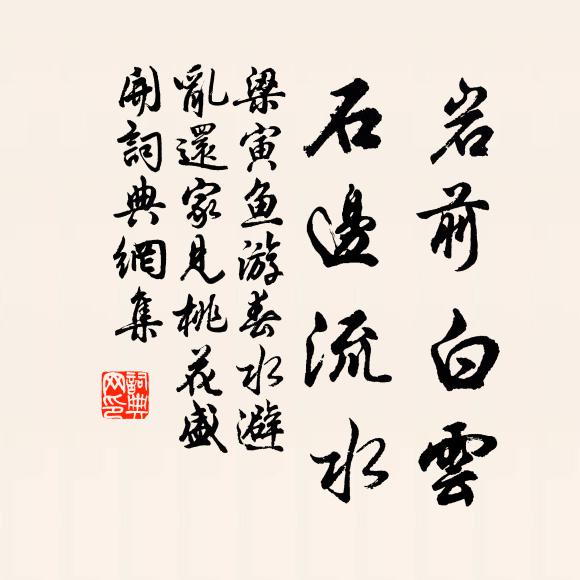 岩前白雲
石邊流水
梁寅魚游春水避
亂還家見桃花盛
開詞典網集
詞典
网印